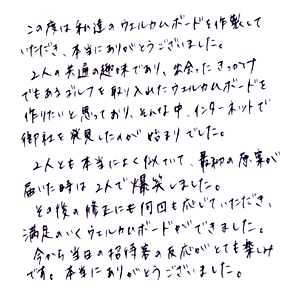 この度は私達のウェルカムボードを作製して
いただき、本当にありがとうございました。
2人の共通の趣味であり、出会ったきっかけ
でもあるゴルフを取り入れたウェルカムボードを
作りたいと思っており、そんな中、インターネットで
御社を発見したのが始まりでした。
2人とも本当によく似ていて、最初の原案が
届いた時は2人で爆笑しました。
その後の修正にも何回も応じていただき、
満足のいくウェルカムボードができました。
今から当日の招待客の反応がとても楽しみ
です。本当にありがとうございました。